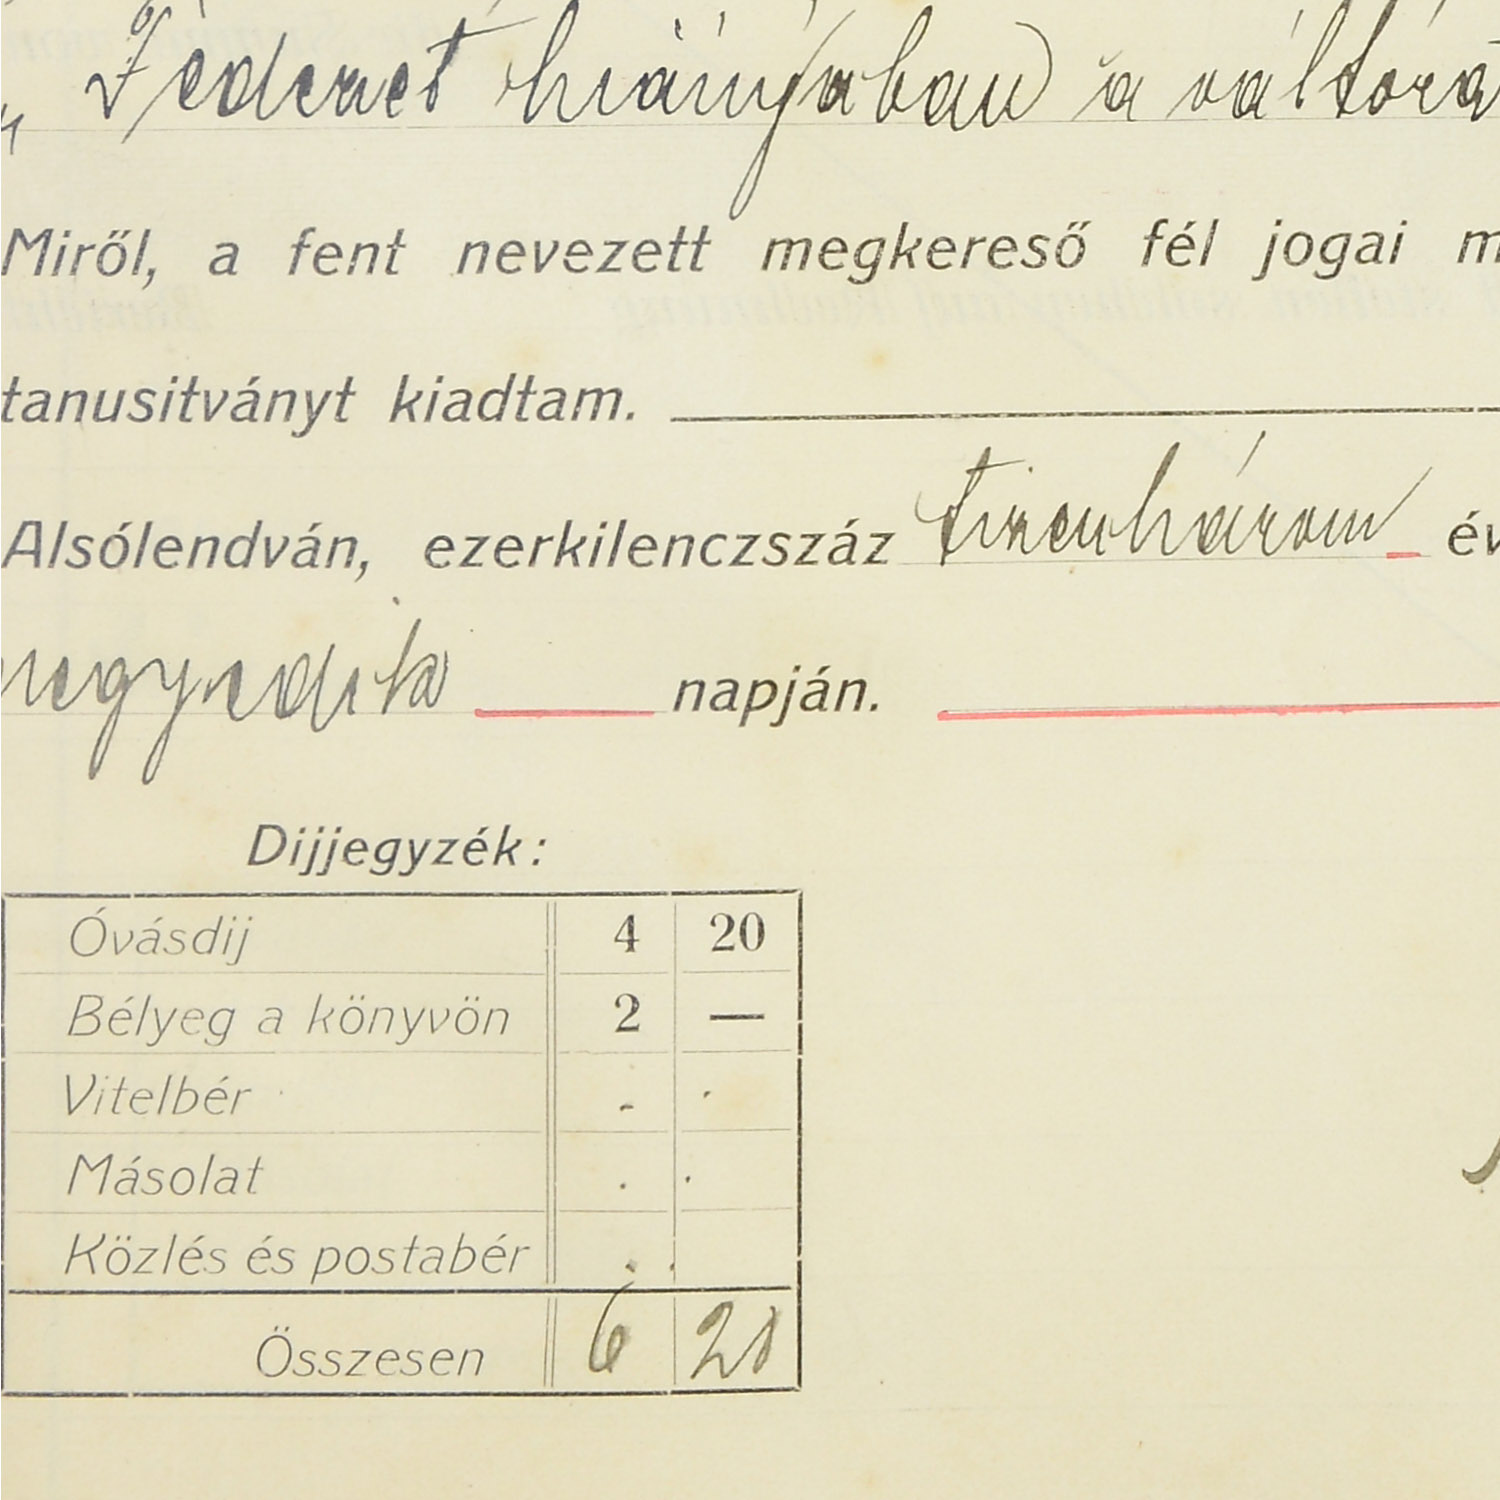 „Fedezet hiányában a váltóra
Miről, a fent nevezett megkereső fél jogai m
tanusitványt kiadtam.
Alsólendván, ezerkilenczszáz tizenhárom év
negyedik napján.
Dijjegyzék:
Óvásdij 4 20
Bélyeg a könyvön 2 —
Vitelbér - .
Másolat . .
Közlés és postabér . .
Összesen 6 20